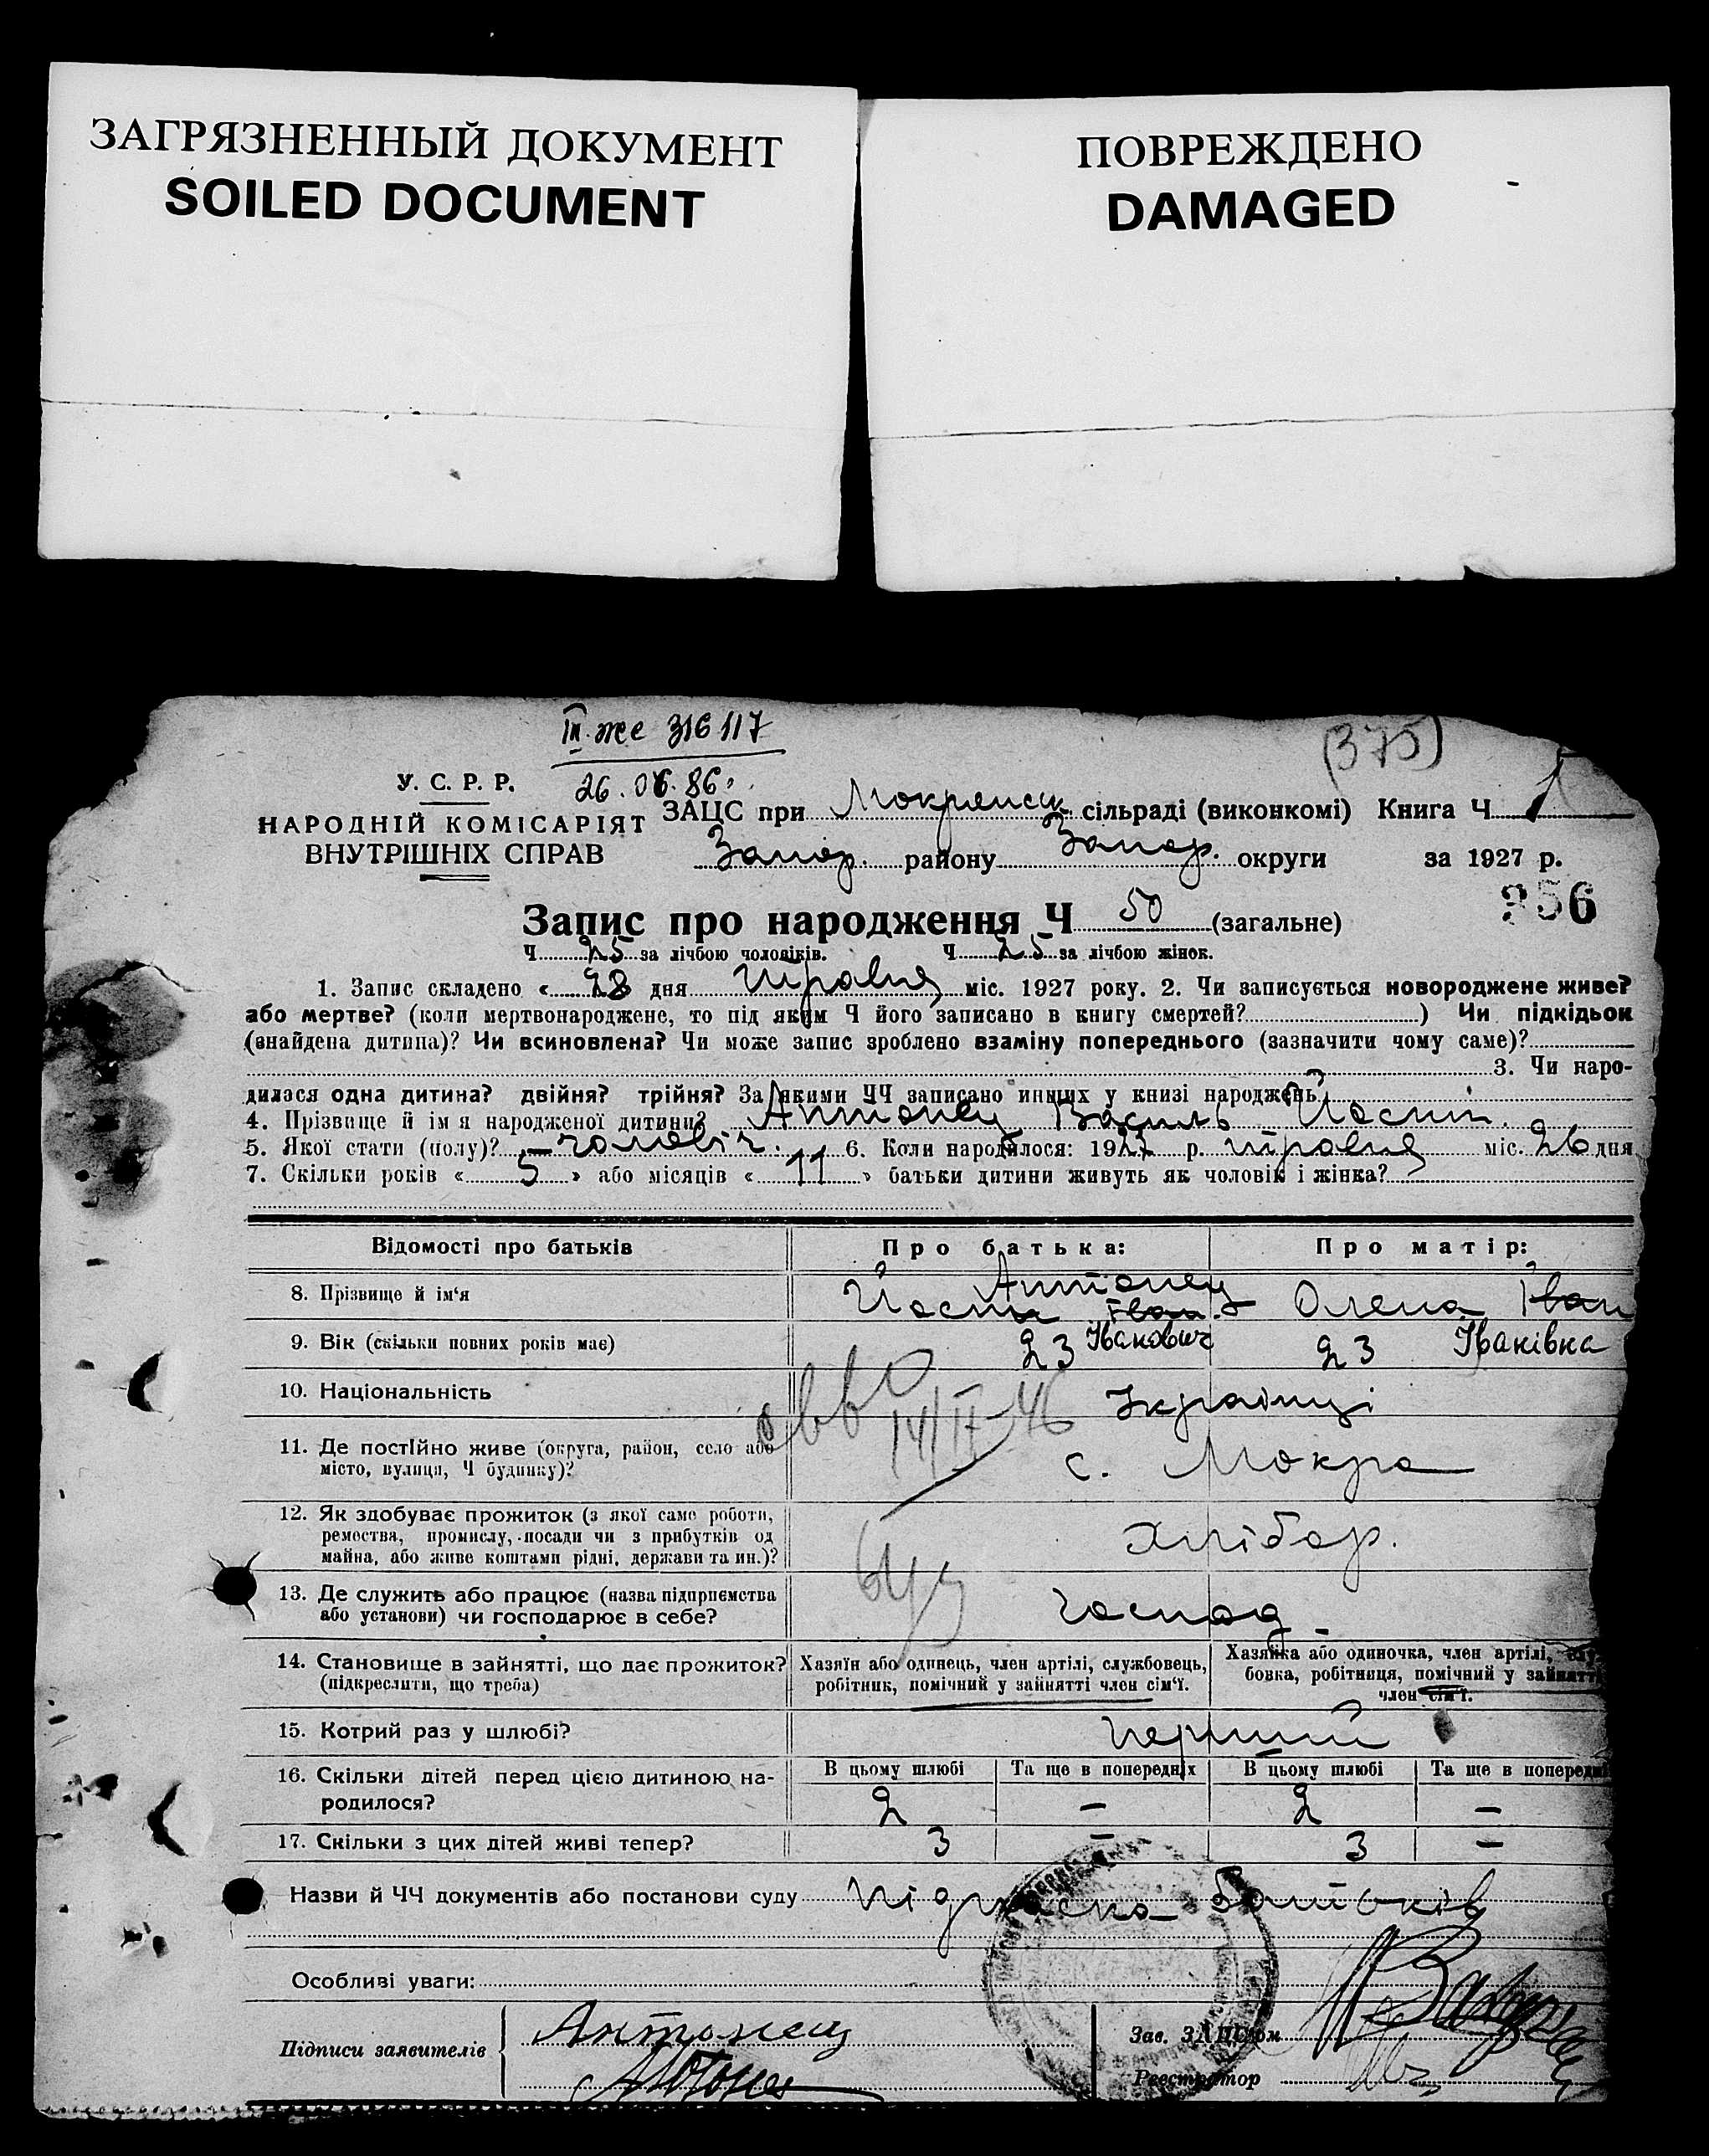 ЗАГРЯЗНЕННЫЙ ДОКУМЕНТ
SOILED DOCUMENT
ПОВРЕЖДЕНО
DAMAGED
III же 316117
(375)
26.06.86.
У. С. Р. Р.
НАРОДНІЙ КОМІСАРІЯТ
ВНУТРІШНІХ СПРАВ
ЗАЦС при Мокрянск сільраді (виконкомі) Книга Ч 1
Запор. району Запор. округи за 1927 р.
356
Запис про народження Ч 50 (загальне)
Ч 25 за лічбою чоловіків. Ч 25 за лічбою жінок.
1. Запис складено « 28 дня травня міс. 1927 року. 2. Чи записується новороджене живе?
або мертве? (коли мертвонароджене, то під яким Ч його записано в книгу смертей? ) Чи підкідьок
(знайдена дитина)? Чи всиновлена? Чи може запис зроблено взаміну попереднього (зазначити чому саме)?
3. Чи наро-
дилася одна дитина? двійня? трійня? За якими ЧЧ записано инших у книзі народжень?
4. Прізвище й ім я народженої дитини? Антонец Василь Йосип.
5. Якої стати (полу)? – чоловіч. 6. Коли народилося: 1927 р. травня міс. 26 дня
7. Скільки років « 5 » або місяців « 11 » батьки дитини живуть як чоловік і жінка?
Відомості про батьків Про батька: Про матір:
8. Прізвище й ім‘я Антонец Йосип Іван. Олена Іван
9. Вік (скільки повних років має) 23 Іванович 23 Іванівна
10. Національність Українці
14/II-46
11. Де постійно живе (округа, район, село або
місто, вулиця, Ч будинку)? с. Мокра
12. Як здобуває прожиток (з якої саме роботи,
ремества, промислу, посади чи з прибутків од
майна, або живе коштами рідні, держави та ин.)? хлібор.
13. Де служить або працює (назва підприємства
або установи) чи господарює в себе? господ
14. Становище в зайнятті, що дає прожиток?
(підкреслити, що треба)
Хазяїн або одинець, член артілі, службовець,
робітник, помічний у зайнятті член сім‘ї.
Хазяйка або одиночка, член артілі, слу-
бовка, робітниця, помічний у зайнятті
член сім‘ї.
15. Котрий раз у шлюбі? перший
16. Скільки дітей перед цією дитиною на-
родилося?
В цьому шлюбі Та ще в попередніх В цьому шлюбі Та ще в попередні
2 – 2 –
17. Скільки з цих дітей живі тепер? 3 – 3 –
Назви й ЧЧ документів або постанови суду підписка батьків
Особливі уваги:
Підписи заявителів Антонец
Зав. ЗАЦСом
Реєстратор